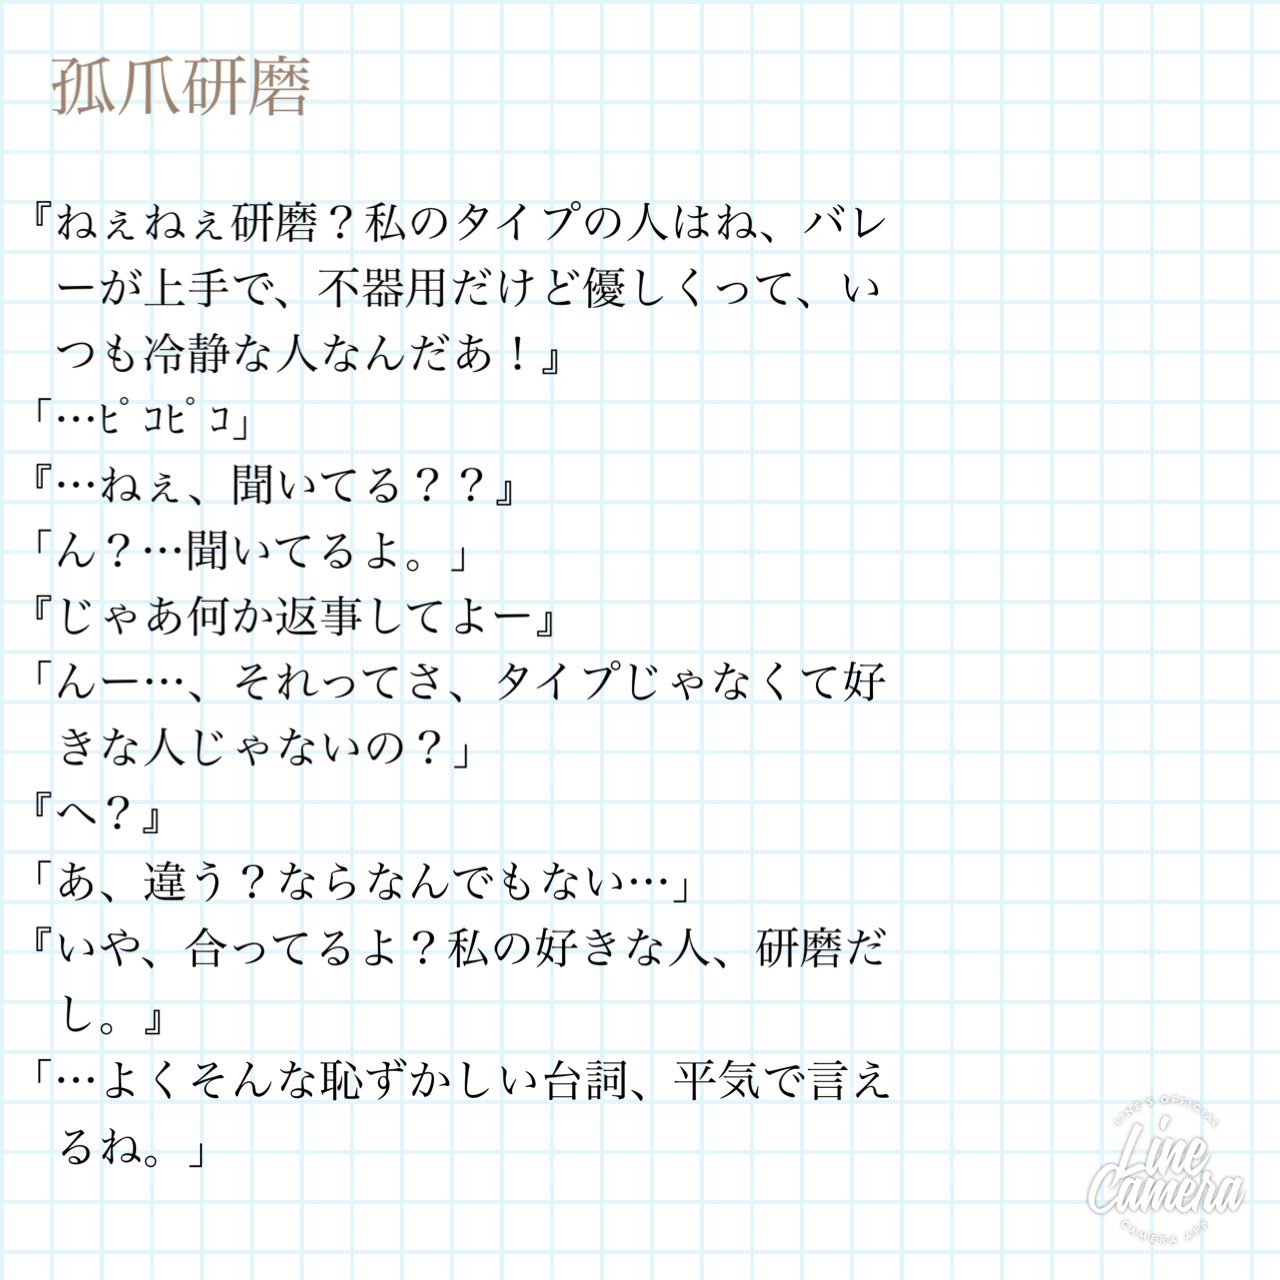 孤爪研磨
『ねぇねぇ研磨？私のタイプの人はね、バレ
ーが上手で、不器用だけど優しくって、い
つも冷静な人なんだあ！』
「…ﾋﾟｺﾋﾟｺ」
『…ねぇ、聞いてる？？』
「ん？…聞いてるよ。」
『じゃあ何か返事してよー』
「んー…、それってさ、タイプじゃなくて好
きな人じゃないの？」
『へ？』
「あ、違う？ならなんでもない…」
『いや、合ってるよ？私の好きな人、研磨だ
し。』
「…よくそんな恥ずかしい台詞、平気で言え
るね。」
LINE'S OFFICIAL
Line
Camera
CAMERA APP